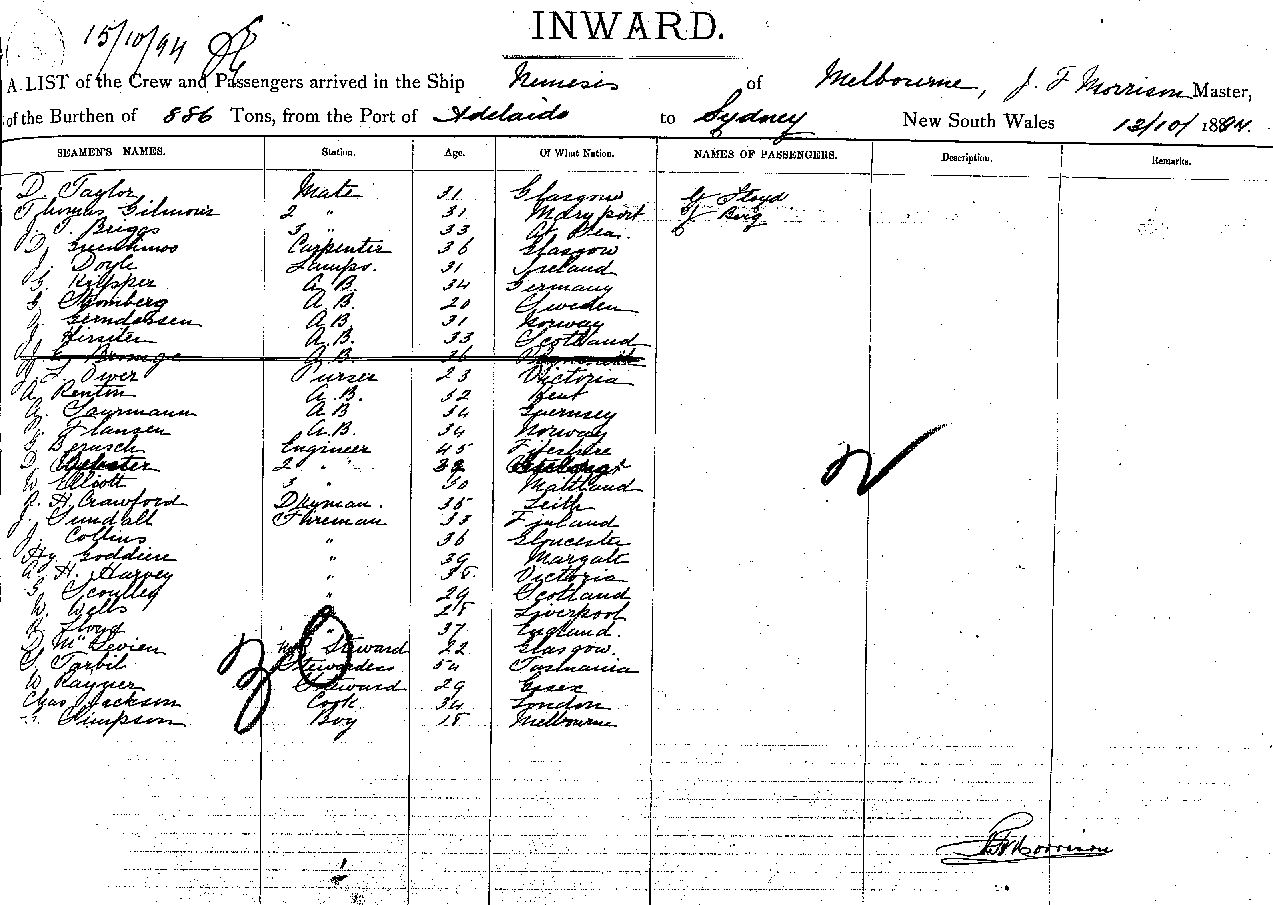 INWARD.
15/10/94
A LIST of the Crew and Passengers arrived in the Ship Nemesis of Melbourne, J. F Morrison Master,
of the Burthen of 886 Tons, from the Port of Adelaide to Sydney New South Wales 13/10/1894.
SEAMEN'S NAMES. Station. Age. Of What Nation. NAMES OF PASSENGERS. Description. Remarks.
D. Taylor Mate 31 Glasgow G Lloyd
Thomas Gilmour 2 " 31 Maryport Berg
Briggs 3 " 33 At Sea.
D. Carpenter 36 Glasgow
J. Doyle Lamps. 31 Ireland
Kilpper A.B. 34 Germany
Stomberg A.B. 20 Sweden
A.B. 31 Norway
J. A.B. 33 Scotland
A.B. 36
Purser 23 Victoria
A. Renton A.B. 32 Kent
A.B 34 Guernsey
Hansen A.B. 34 Norway
Engineer 45 Fifeshire
D. Webster 2 "
W. Elliott 3 " 30 Maitland
J. H. Crawford D'kyman. 35 Leith
J. Sundall Fireman 33 Finland
J. Collins " 36 Gloucester
Hy Goddiere " 39 Margate
H. Harvey " Victoria
" 29 Scotland
W. Wells " Liverpool
Lloyd " 37 England.
McVevien Steward 22 Glasgow.
Tarbil Stewardess 54 Tasmania
W Rayner Steward 29 Essex
Chas Jackson Cook 34 London
Simpson Boy 15 Melbourne
J F Morrison